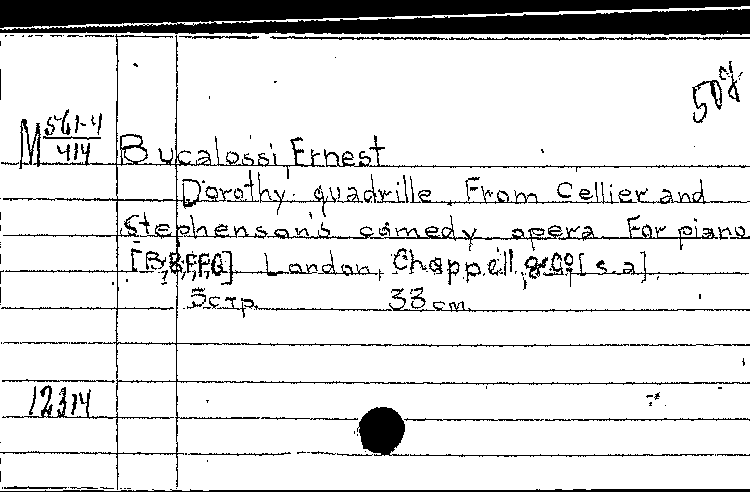 50к
M 561-4
414
Bucalossi, Ernest
Dorothy. quadrille. From Cellier and
Stephenson's comedy opera For piano
[B,B,F,F,G] London, Chappell & Co [s.a].
5 стр. 33 cm.
12314